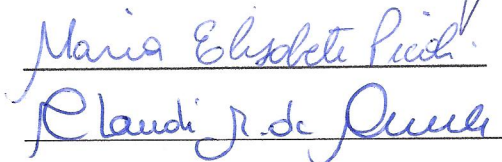 Maria Elisabete Picoli
Claudi M. de